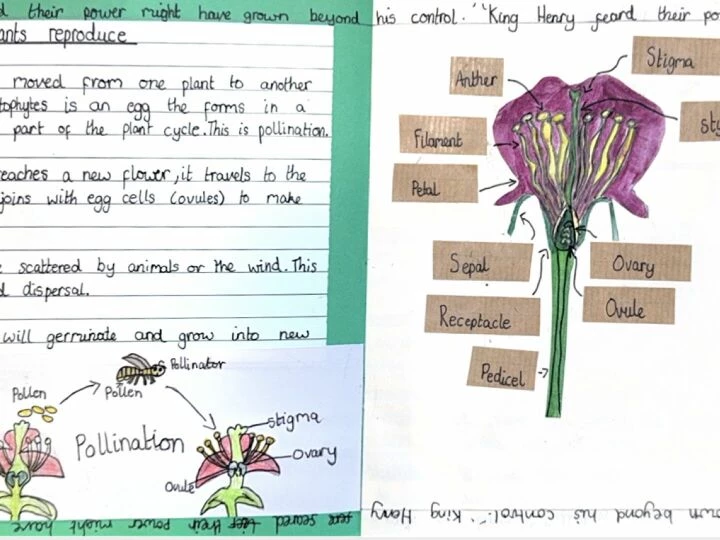 d their power might have grown beyond his control. "King Henry feard their po
ants reproduce
moved from one plant to another
tophytes is an egg the forms in a
part of the plant cycle. This is pollination.
eaches a new flower, it travels to the
joins with egg cells (ovules) to make
scattered by animals or the wind. This
d dispersal.
will germinate and grow into new
Pollinator
Pollen
Pollen
Pollination
stigma
Ovary
Ovule
Anther
Stigma
sty
Filament
Petal
Sepal
Ovary
Receptacle
Ovule
Pedicel
wn beyond his control." King Henry
scared their power might have